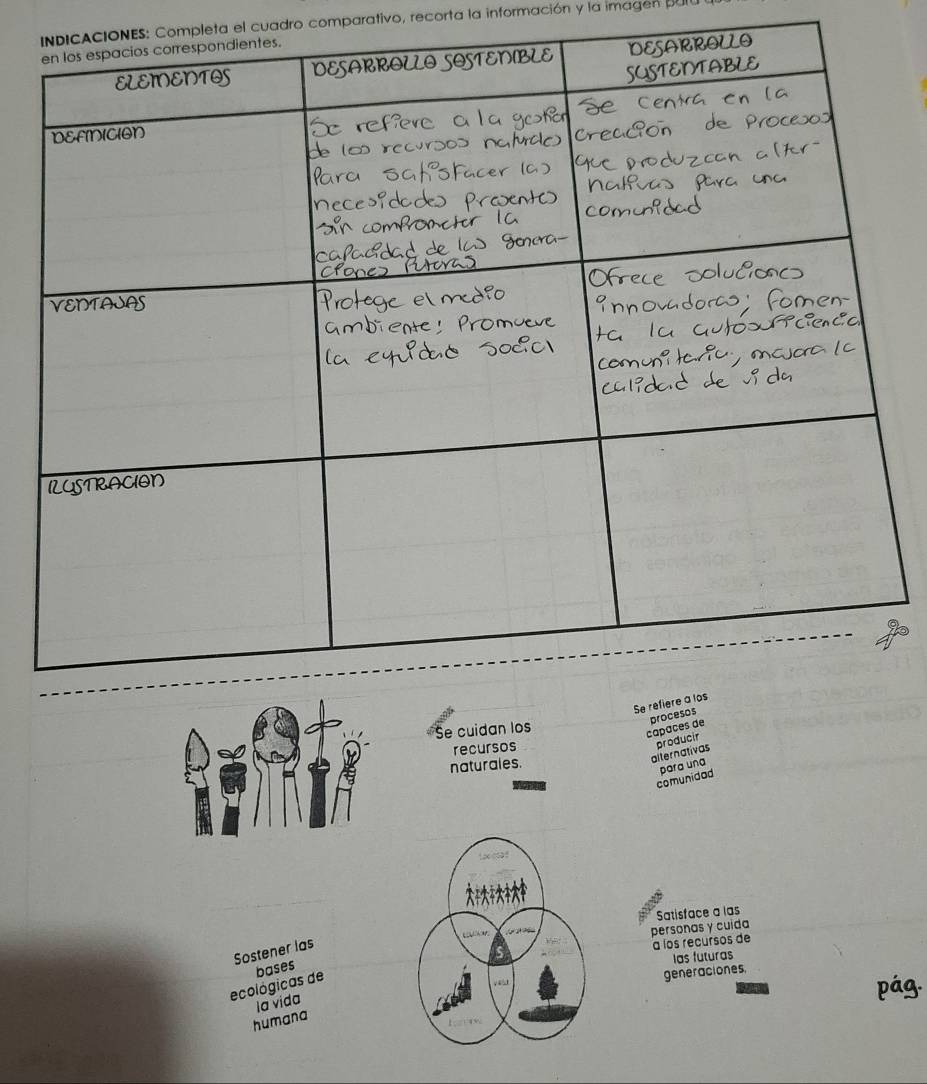 INDICACIONES: Completa el cuadro comparativo, recorta la información y la imagen
en los espacios correspondientes.
ELEMENTOS
DESARROLLO SOSTENIBLE
DESARROLLO
SUSTENTABLE
DEFINICION
Se refiere a la gestion
de los recursos naturales
Para satisfacer las
necesidades presentes
sin comprometer la
capacidad de las genera-
ciones futuras
Se centra en la
creacion de procesos
que produzcan alter-
nativas para una
comunidad
VENTAJAS
Protege el medio
ambiente! Promueve
la equidad social
Ofrece soluciones
innovadoras; fomen-
ta la autosuficiencia
comunitaria, mejora la
calidad de vida
ILUSTRACION
Se cuidan los
recursos
naturales.
Se refiere a los
procesos
capaces de
producir
alternativas
para una
comunidad
Sociedad
S
Sostener las
bases
ecológicas de
la vida
humana
Satisface a las
personas y cuida
a los recursos de
las futuras
generaciones.
pág.